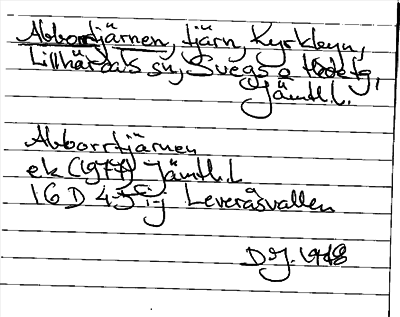 Abborrtjärnen, tjärn, Kyrkbyn,
Lillhärdals sn, Svegs o Hede tg,
Jämtl.l.
Abborrtjärnen
ek (1977) Jämtl.l
16 D 4-5 i-j Leveråsvallen
DSJ. 1948